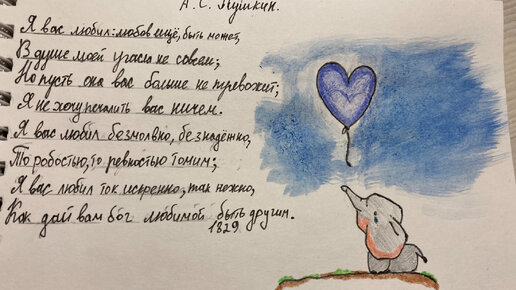 А. С. Пушкин.
Я вас любил: любовь ещё, быть может,
В душе моей угасла не совсем;
Но пусть она вас больше не тревожит;
Я не хочу печалить вас ничем.
Я вас любил безмолвно, безнадёжно,
То робостью, то ревностью томим;
Я вас любил так искренно, так нежно,
Как дай вам бог любимой быть другим.
1829